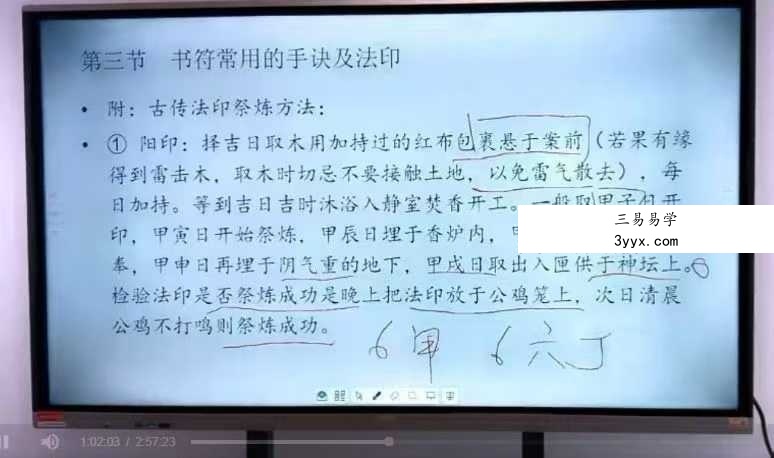 第三节 书符常用的手诀及法印
• 附：古传法印祭炼方法：
• ① 阳印：择吉日取木用加持过的红布包裹悬于案前（若果有缘
得到雷击木，取木时切忌不要接触土地，以免雷气散去），每
日加持。等到吉日吉时沐浴入静室焚香开工。一般取甲子日开
印，甲寅日开始祭炼，甲辰日埋于香炉内，
奉，甲申日再埋于阴气重的地下，甲戌日取出入匣供于神坛上。
检验法印是否祭炼成功是晚上把法印放于公鸡笼上，次日清晨
公鸡不打鸣则祭炼成功。
6甲 6六丁
三易易学
3yyx.com
1:02:03 / 2:57:23